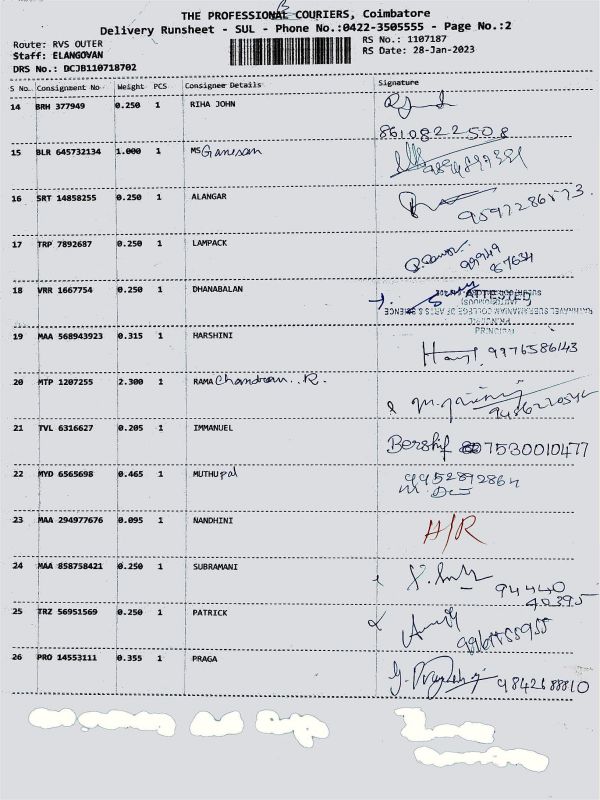 THE PROFESSIONAL COURIERS, Coimbatore
Delivery Runsheet - SUL - Phone No.:0422-3505555 - Page No.:2
Route: RVS OUTER RS No.: 1107187
Staff: ELANGOVAN RS Date: 28-Jan-2023
DRS No.: DCJB110718702
S No. Consignment No Weight PCS Consignee Details Signature
14 BRH 377949 0.250 1 RIHA JOHN
8610822508
15 BLR 645732134 1.000 1 MS Ganesan
16 SRT 14858255 0.250 1 ALANGAR
9597286573
17 TRP 7892687 0.250 1 LAMPACK
99949
67634
18 VRR 1667754 0.250 1 DHANABALAN
ATTESTED
RATHNAVEL SUBRAMANIAM COLLEGE OF ARTS & SCIENCE
(AUTONOMOUS)
PRINCIPAL
19 MAA 568943923 0.315 1 HARSHINI
9976586143
20 MTP 1207255 2.300 1 RAMA Chandran..R.
21 TVL 6316627 0.205 1 IMMANUEL
7530010477
22 MYD 6565698 0.465 1 MUTHUpal
9952892864
23 MAA 294977676 0.095 1 NANDHINI
H/R
24 MAA 858758421 0.250 1 SUBRAMANI
94440
40395
25 TRZ 56951569 0.250 1 PATRICK
26 PRO 14553111 0.355 1 PRAGA
9842688810